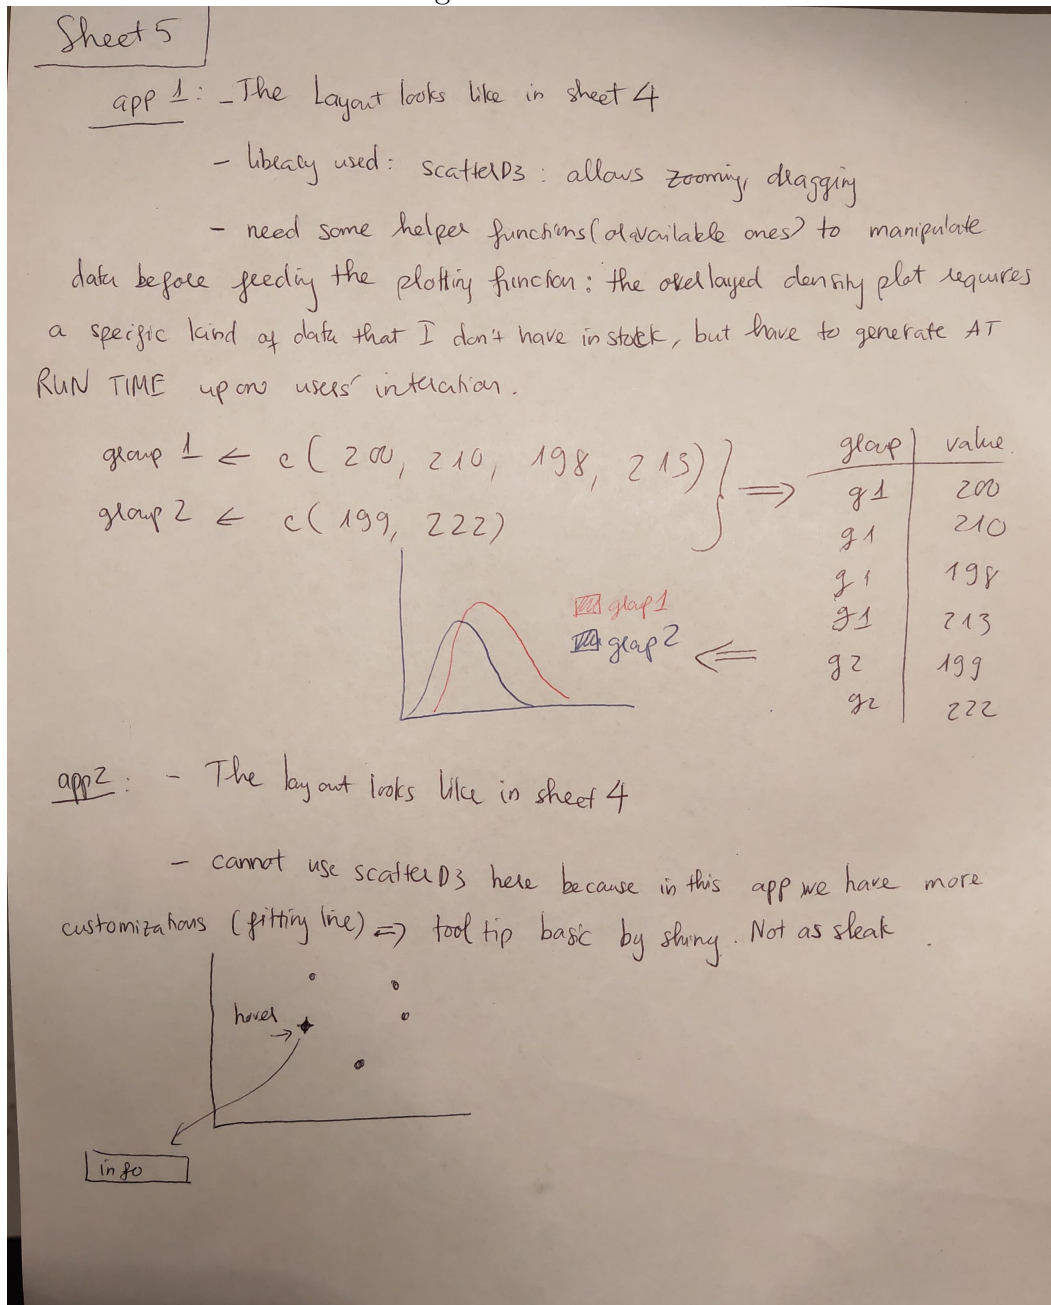 Sheet 5
app 1: - The Layout looks like in sheet 4
- library used: scatterD3: allows zooming, dragging
- need some helper functions (or available ones) to manipulate
data before feeding the plotting function: the overlayed density plot requires
a specific kind of data that I don't have in stock, but have to generate AT
RUN TIME upon users' interaction.
group 1 ← c( 200, 210, 198, 213) } ⇒
group 2 ← c( 199, 222)
group value
g1 200
g1 210
g1 198
g1 213
g2 199
g2 222
group 1
group 2 ⇐
app2: - The layout looks like in sheet 4
- cannot use scatterD3 here because in this app we have more
customizations (fitting line) => tool tip basic by shiny. Not as sleak.
hover
info